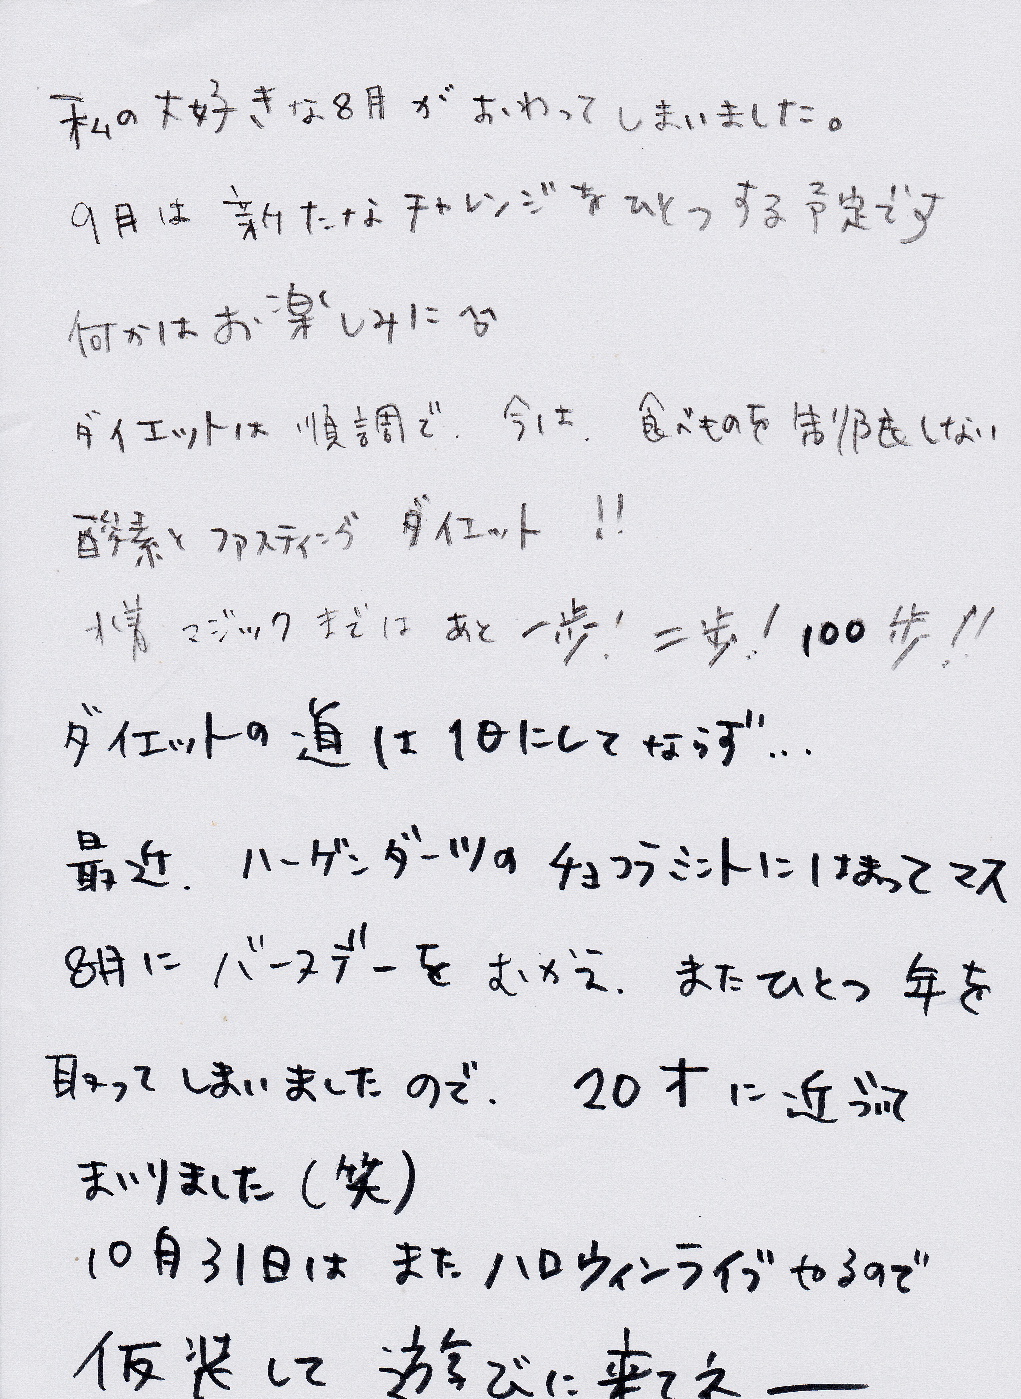 私の大好きな8月がおわってしまいました。
9月は新たなチャレンジをひとつする予定です
何かはお楽しみに
ダイエットは順調で、今は、食べものを制限しない
酵素とファスティング ダイエット!!
マジックまではあと一歩!二歩!100歩!!
ダイエットの道は1日にしてならず…
最近、ハーゲンダーツのチョコラミントにはまってマス
8月にバースデーをむかえ、またひとつ年を
取ってしまいましたので、20才に近づいて
まいりました(笑)
10月31日はまたハロウィンライブやるので
仮装して遊びに来てネー